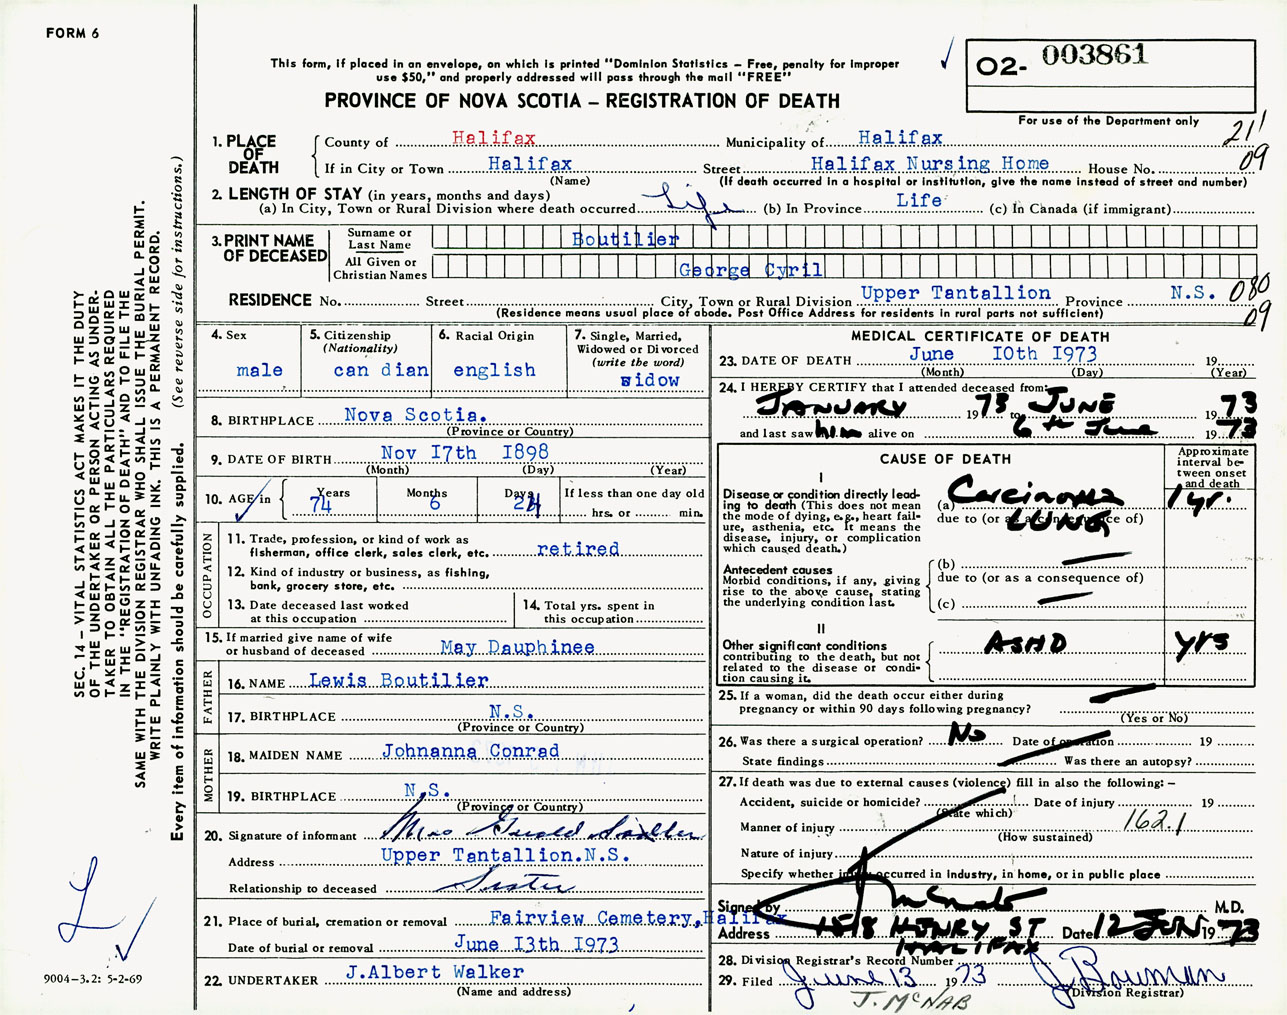 FORM 6
This form, if placed in an envelope, on which is printed "Dominion Statistics – Free, penalty for improper
use $50," and properly addressed will pass through the mail "FREE"
PROVINCE OF NOVA SCOTIA – REGISTRATION OF DEATH
O2- 003861
For use of the Department only
SEC. 14 – VITAL STATISTICS ACT MAKES IT THE DUTY
OF THE UNDERTAKER OR PERSON ACTING AS UNDER-
TAKER TO OBTAIN ALL THE PARTICULARS REQUIRED
IN THE "REGISTRATION OF DEATH" AND TO FILE THE
SAME WITH THE DIVISION REGISTRAR WHO SHALL ISSUE THE BURIAL PERMIT.
WRITE PLAINLY WITH UNFADING INK. THIS IS A PERMANENT RECORD.
Every item of information should be carefully supplied. (See reverse side for instructions.)
1. PLACE OF DEATH
County of Halifax Municipality of Halifax 211
If in City or Town Halifax Street Halifax Nursing Home House No. 09
(Name) (If death occurred in a hospital or institution, give the name instead of street and number)
2. LENGTH OF STAY (in years, months and days)
(a) In City, Town or Rural Division where death occurred Life (b) In Province Life (c) In Canada (if immigrant)
3. PRINT NAME OF DECEASED
Surname or Last Name Boutilier
All Given or Christian Names George Cyril
RESIDENCE No. Street City, Town or Rural Division Upper Tantallion Province N.S. 080
(Residence means usual place of abode. Post Office Address for residents in rural parts not sufficient) 09
4. Sex
male
5. Citizenship
(Nationality)
can dian
6. Racial Origin
english
7. Single, Married,
Widowed or Divorced
(write the word)
widow
8. BIRTHPLACE Nova Scotia.
(Province or Country)
9. DATE OF BIRTH Nov I7th I898
(Month) (Day) (Year)
10. AGE in Years Months Days If less than one day old
74 6 24 hrs. or min.
OCCUPATION
11. Trade, profession, or kind of work as
fisherman, office clerk, sales clerk, etc. retired
12. Kind of industry or business, as fishing,
bank, grocery store, etc.
13. Date deceased last worked
at this occupation
14. Total yrs. spent in
this occupation
15. If married give name of wife
or husband of deceased May Dauphinee
FATHER
16. NAME Lewis Boutilier
17. BIRTHPLACE N.S.
(Province or Country)
MOTHER
18. MAIDEN NAME Johnanna Conrad
19. BIRTHPLACE N.S.
(Province or Country)
20. Signature of informant Mrs
Address Upper Tantallion.N.S.
Relationship to deceased Sister
21. Place of burial, cremation or removal Fairview Cemetery, Halifax
Date of burial or removal June I3th I973
22. UNDERTAKER J.Albert Walker
(Name and address)
9004–3.2: 5-2-69
MEDICAL CERTIFICATE OF DEATH
23. DATE OF DEATH June I0th I973 19
(Month) (Day) (Year)
24. I HEREBY CERTIFY that I attended deceased from:
JANUARY 1973 to JUNE 1973
and last saw him alive on 6th June 1973
CAUSE OF DEATH
Approximate
interval be-
tween onset
and death
I
Disease or condition directly lead-
ing to death (This does not mean
the mode of dying, e.g., heart fail-
ure, asthenia, etc. It means the
disease, injury, or complication
which caused death.)
(a) Carcinoma 1 yr.
due to (or as a consequence of)
LUNG
Antecedent causes
Morbid conditions, if any, giving
rise to the above cause, stating
the underlying condition last.
(b)
due to (or as a consequence of)
(c)
II
Other significant conditions
contributing to the death, but not
related to the disease or condi-
tion causing it.
ASHD yrs
25. If a woman, did the death occur either during
pregnancy or within 90 days following pregnancy?
(Yes or No)
26. Was there a surgical operation? No Date of operation 19
State findings Was there an autopsy?
27. If death was due to external causes (violence) fill in also the following: –
Accident, suicide or homicide? Date of injury 19
(State which)
Manner of injury 162.1
(How sustained)
Nature of injury
Specify whether injury occurred in industry, in home, or in public place
Signed by M.D.
Address 1518 HENRY ST Date 12 JUN 1973
HALIFAX
28. Division Registrar's Record Number
29. Filed June 13 1973 J Bowman
(Division Registrar)
J. McNAB